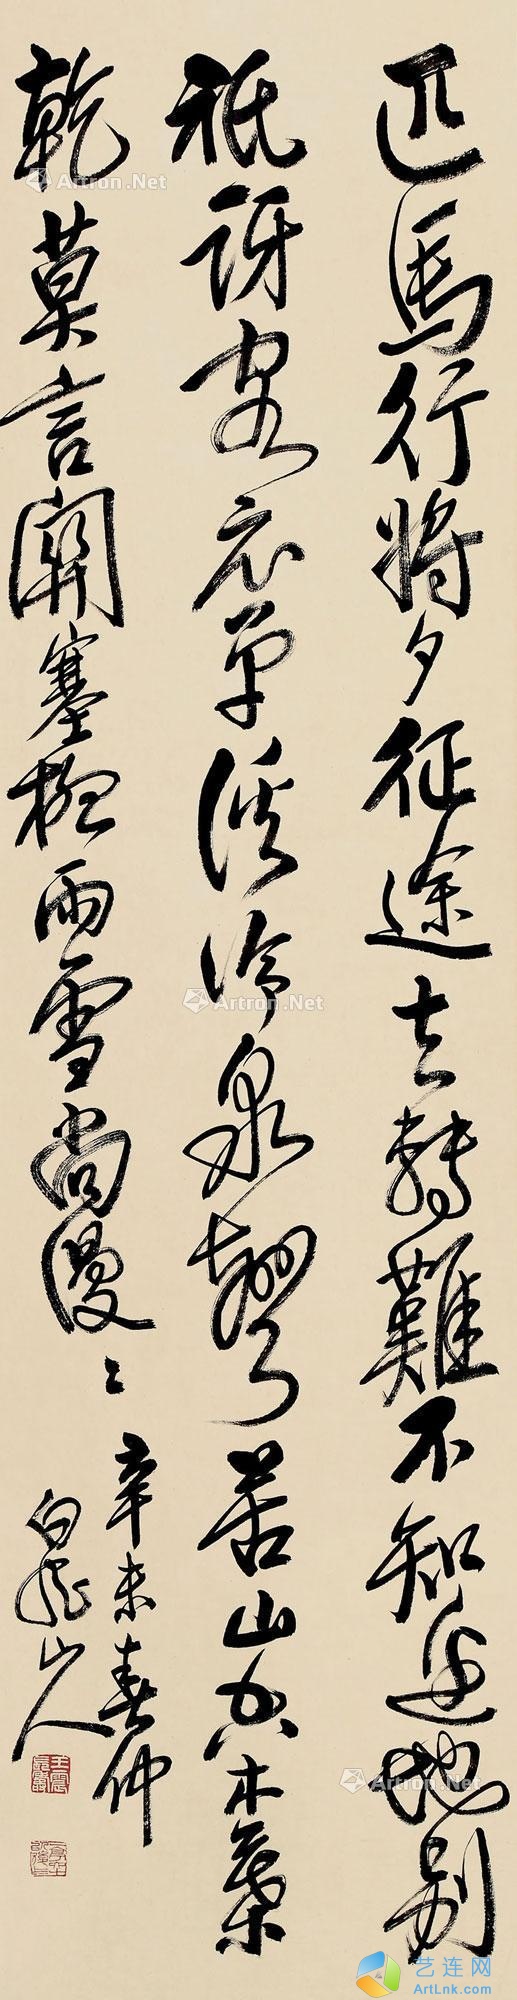 匹馬行將夕征途去轉難不知邊地別
祇訝客衣單溪冷泉聲苦山空木葉
乾莫言關塞極雨雪尚漫〻
辛未春仲
白龍山人
王震
Artron.Net
Artron.Net
Artron.Net
Artron.Net
艺连网
ArtLnk.com